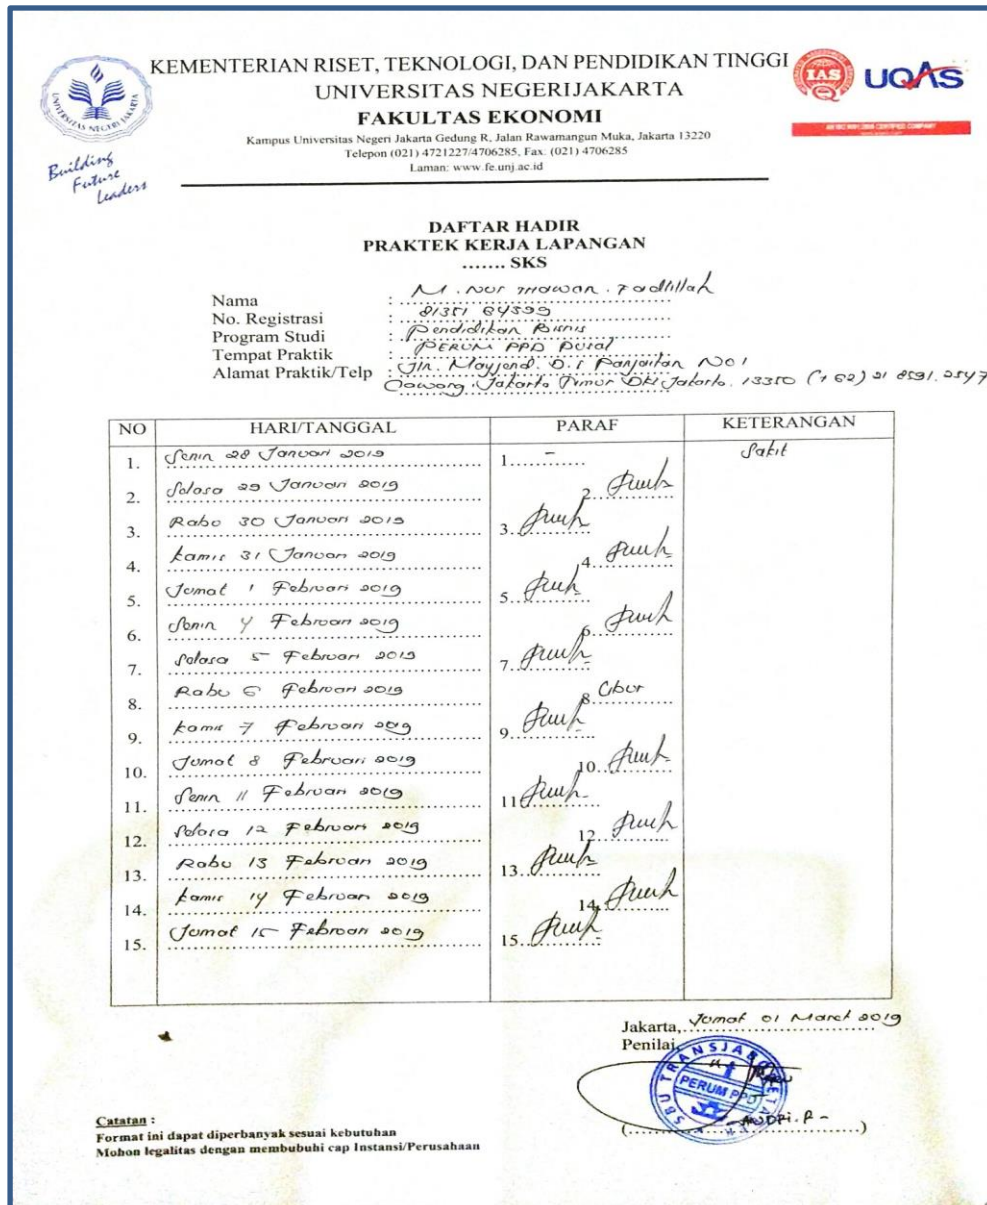 KEMENTERIAN RISET, TEKNOLOGI, DAN PENDIDIKAN TINGGI
UNIVERSITAS NEGERIJAKARTA
FAKULTAS EKONOMI
Kampus Universitas Negeri Jakarta Gedung R, Jalan Rawamangun Muka, Jakarta 13220
Telepon (021) 4721227/4706285, Fax: (021) 4706285
Laman: www.fe.unj.ac.id
UNIVERSITAS NEGERI JAKARTA
Building
Future
Leaders
IAS
UQAS
DAFTAR HADIR
PRAKTEK KERJA LAPANGAN
....... SKS
Nama : M. Nur
No. Registrasi :
Program Studi : Pendidikan Bisnis
Tempat Praktik : PERUM PPD Pusat
Alamat Praktik/Telp : Jln. Mayjend. D.I Panjaitan No 1
Cawang, Jakarta Timur DKI Jakarta. 13350 (+62) 21 8591.2547
NO HARI/TANGGAL PARAF KETERANGAN
1. Senin 28 Januari 2019 1. - Sakit
2. Selasa 29 Januari 2019 2.
3. Rabu 30 Januari 2019 3.
4. Kamis 31 Januari 2019 4.
5. Jumat 1 Februari 2019 5.
6. Senin 4 Februari 2019 6.
7. Selasa 5 Februari 2019 7.
8. Rabu 6 Februari 2019 8. Libur
9. Kamis 7 Februari 2019 9.
10. Jumat 8 Februari 2019 10.
11. Senin 11 Februari 2019 11.
12. Selasa 12 Februari 2019 12.
13. Rabu 13 Februari 2019 13.
14. Kamis 14 Februari 2019 14.
15. Jumat 15 Februari 2019 15.
Jakarta, Jumat 01 Maret 2019
Penilai,
SBU TRANSJABODETABEK
PERUM PPD
Catatan :
Format ini dapat diperbanyak sesuai kebutuhan
Mohon legalitas dengan membubuhi cap Instansi/Perusahaan